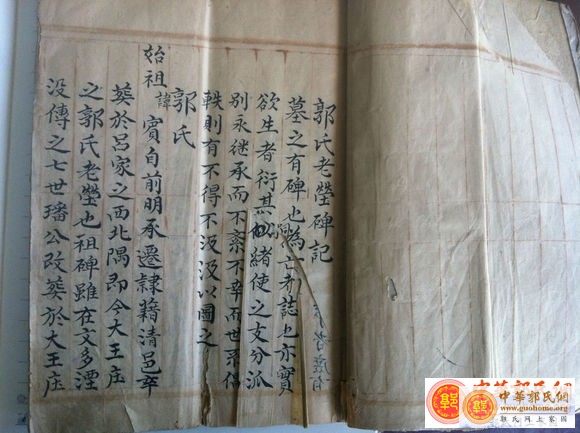 郭氏老塋碑記
墓之有碑也為亡者誌也亦實
欲生者衍其似緒使之支分泒
别永继承而不紊不幸而世系
軼則有不得不汲汲以圖之
郭氏
始祖諱賓自前明承遷隸籍清邑卒
葬於吕家之西北隅即今大王庄
之郭氏老塋也祖碑雖在文多湮
没傳之七世璠公改葬於大王庄
中華郭氏網
www.guohome.org
郭氏网上家園